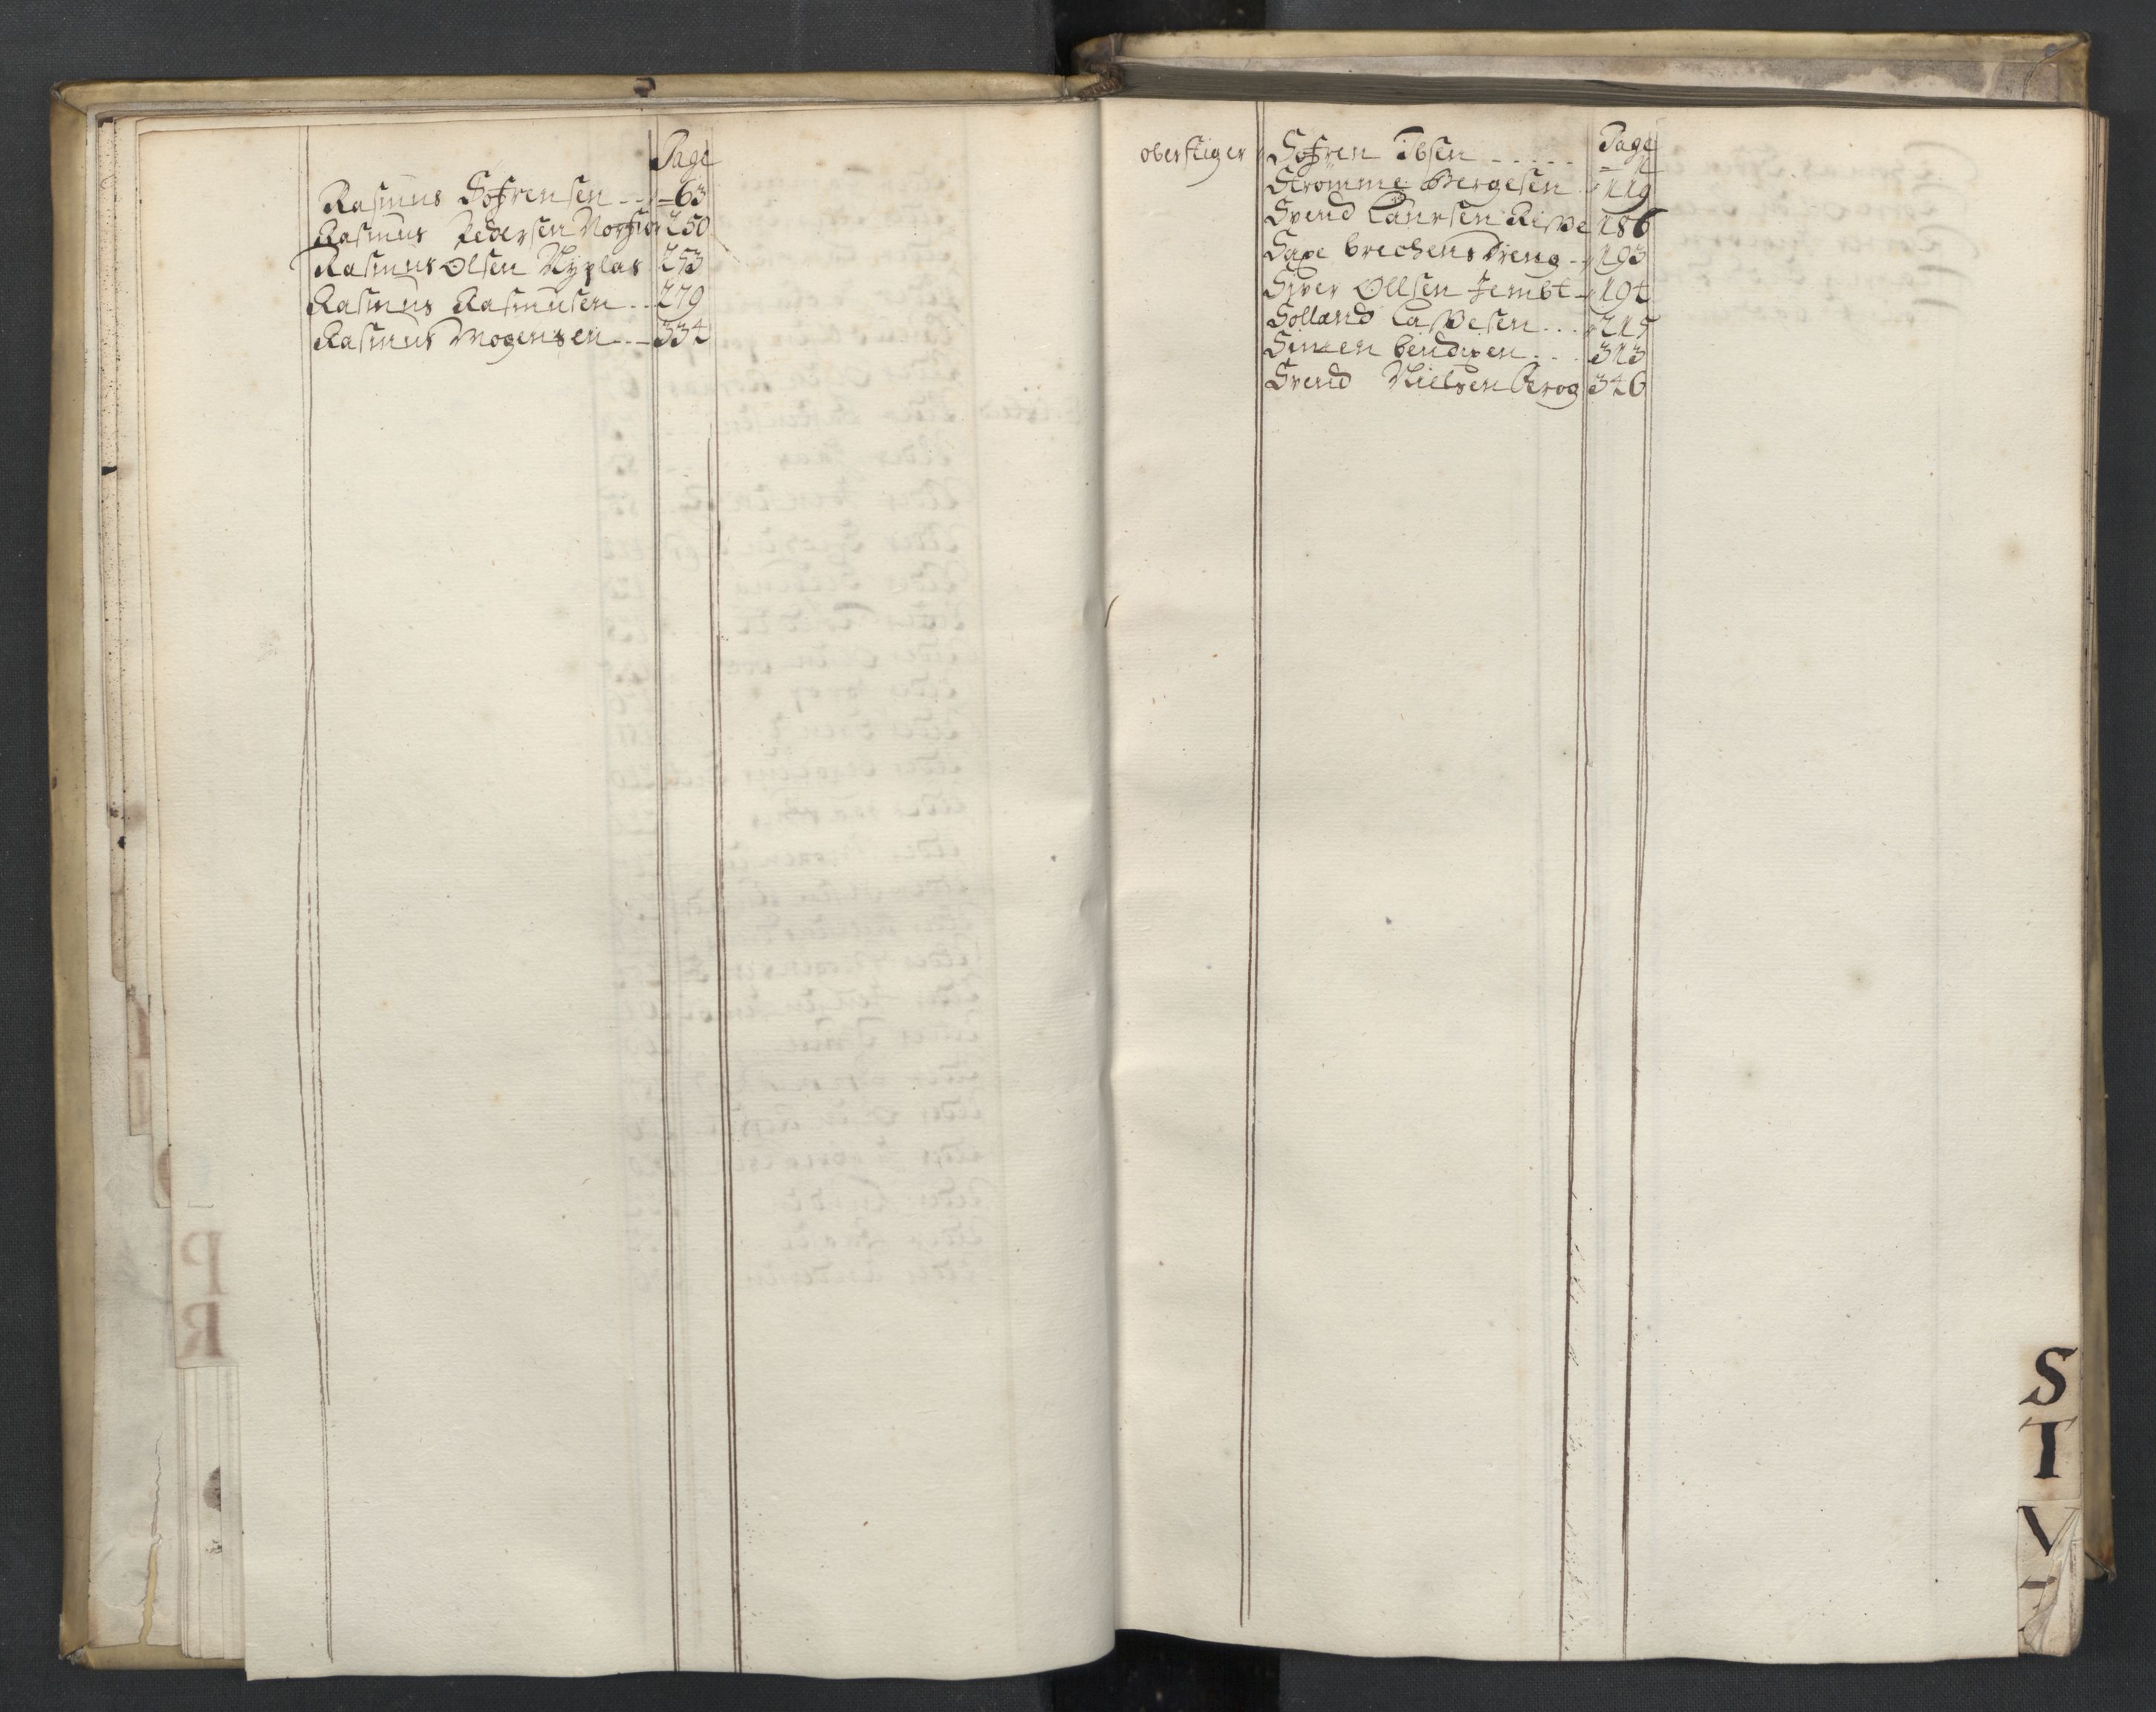 Page
Rasmus Sofrensen - - - 63
Rasmus Pedersen 250
Rasmus Olsen Nyplas 253
Rasmus Rasmusen - - 279
Rasmus Mogensen - - 334
Page
oberstiger Sofren Ibsen - - - - -
Strömme Bergesen 119
Svend Laursen 186
Saxe brechens dreng - 193
Siver Ollsen Jembt - 194
Sölland CasPesen - - - 215
Simen bendixen - - - 313
Svend Nielsen 346
P
R
S
T
V